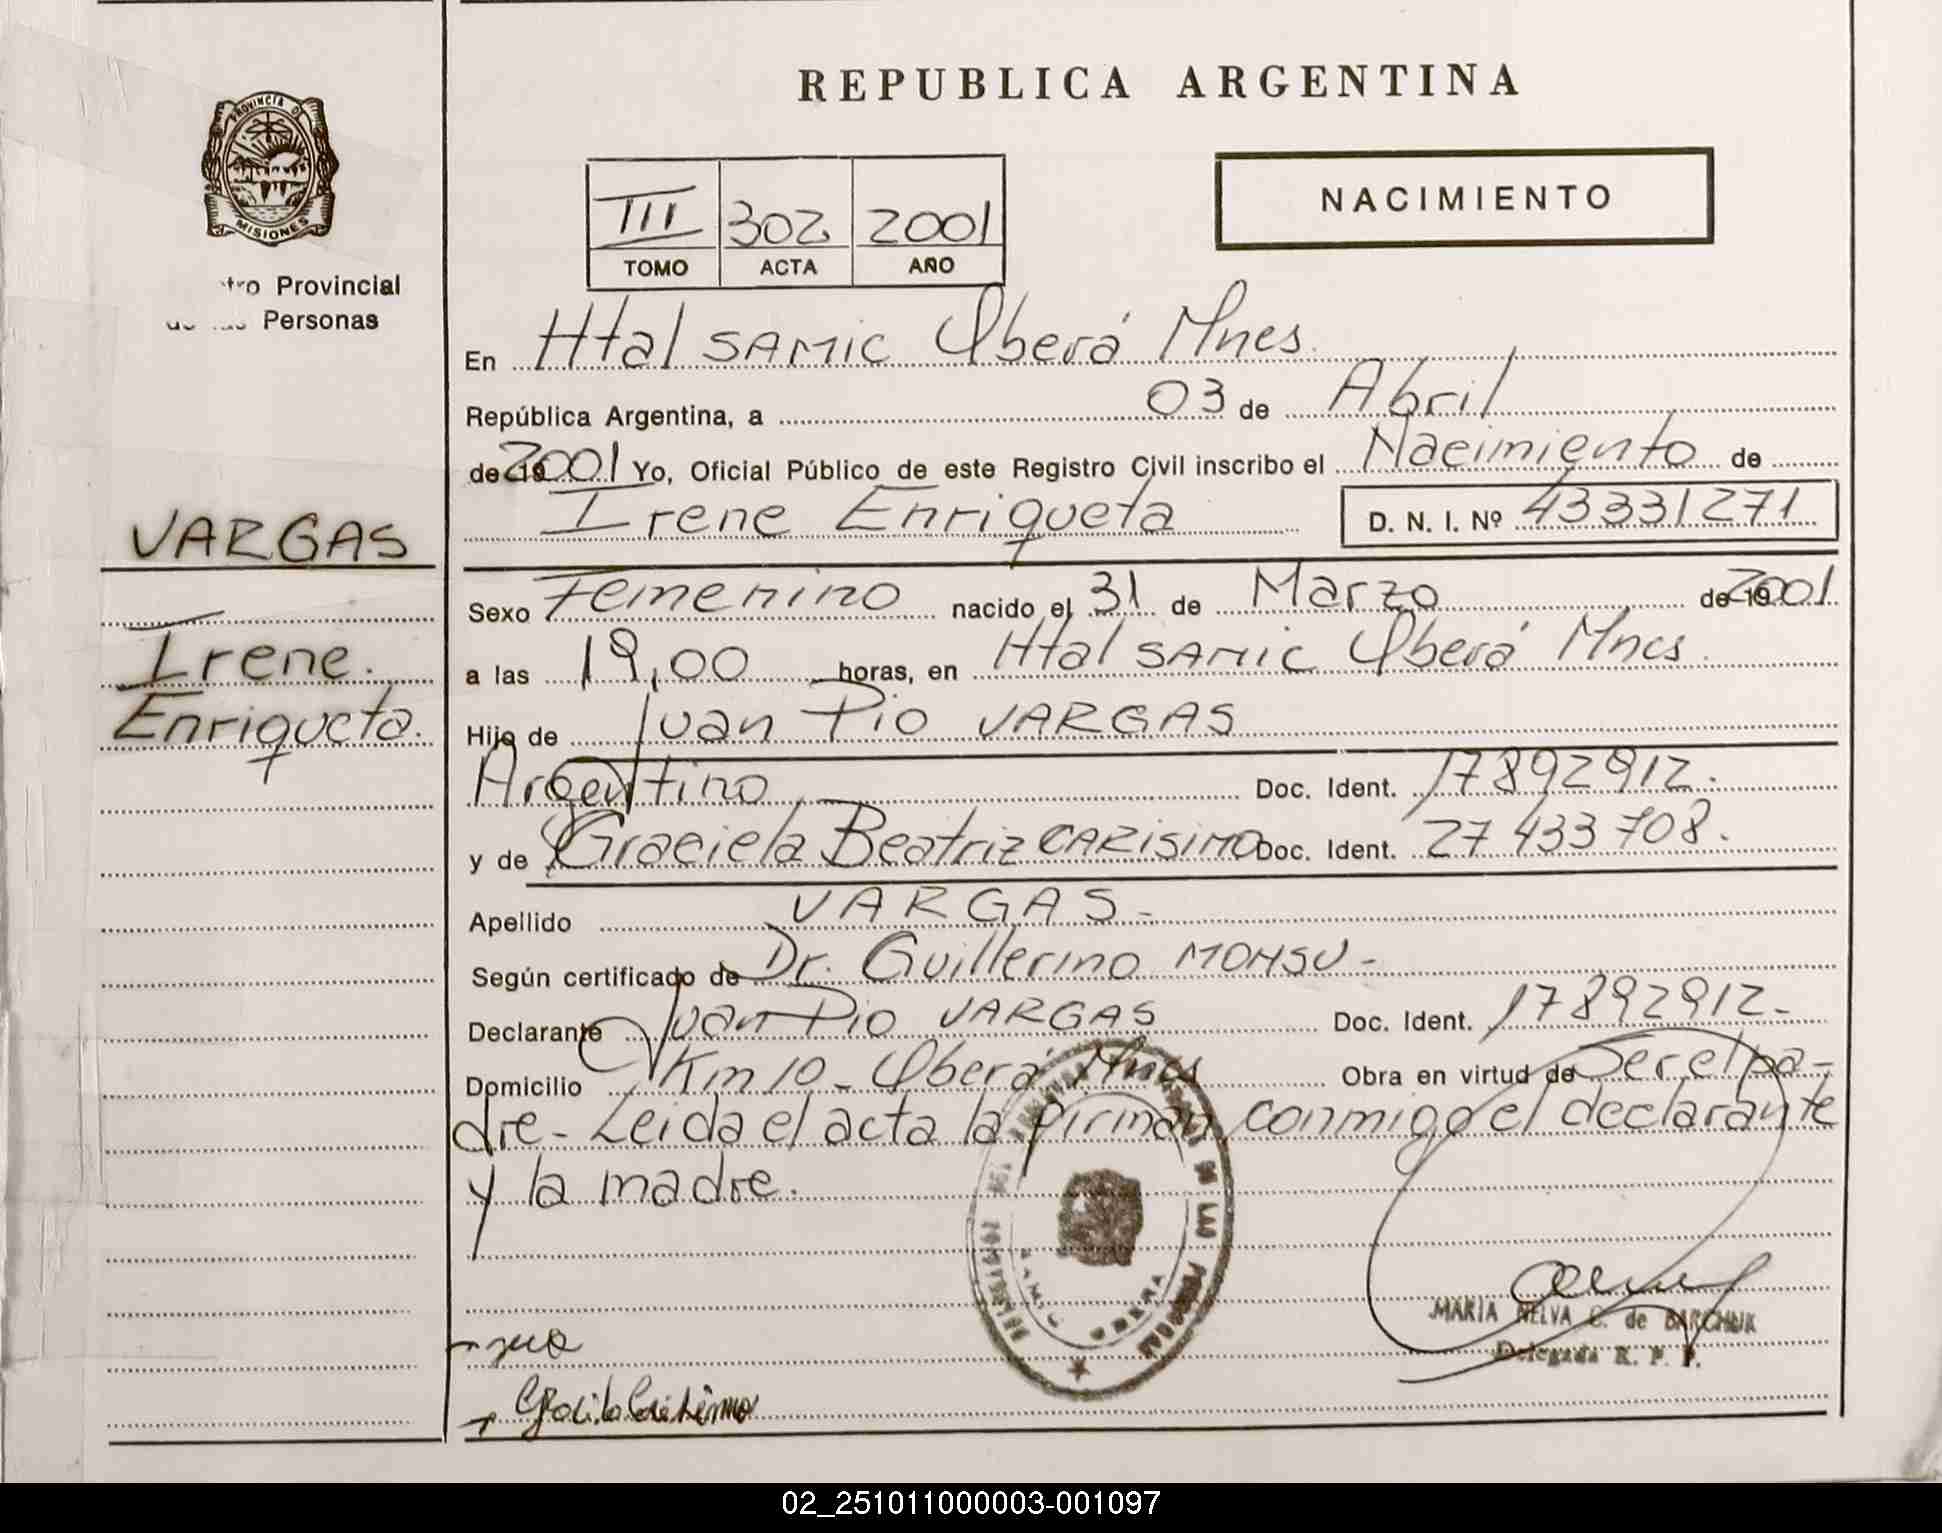 REPUBLICA ARGENTINA
PROVINCIA D
MISIONES
Provincial
Personas
III 302 2001
TOMO ACTA AÑO
NACIMIENTO
En Htal SAMIC Oberá Mnes.
República Argentina, a 03 de Abril
de 2001 Yo, Oficial Público de este Registro Civil inscribo el Nacimiento de
Irene Enriqueta D. N. I. Nº 43331271
VARGAS
Irene.
Enriqueta.
Sexo Femenino nacido el 31 de Marzo de 2001
a las 19,00 horas, en Htal SAMIC Oberá Mnes.
Hijo de Juan Pio VARGAS
Argentino Doc. Ident. 17892912.
y de Graciela Beatriz CARISIMO Doc. Ident. 27 433 708.
Apellido VARGAS-
Según certificado de Dr. Guillermo
Declarante Juan Pio VARGAS Doc. Ident. 17892912-
Domicilio Km 10- Oberá Mnes Obra en virtud de Ser el pa-
dre- Leida el acta la firman conmigo el declarante
y la madre.
MARIA NELVA C. de BARCHUK
Delegada R. P. P.
02_251011000003-001097